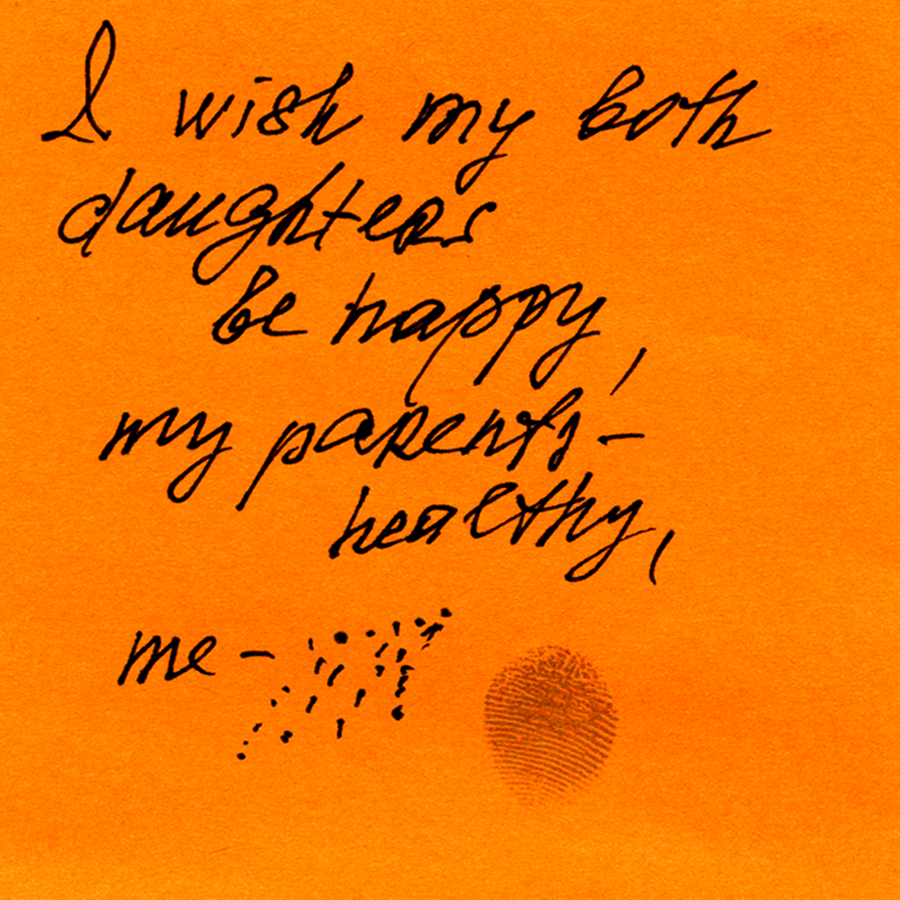 I wish my both
daughters
be happy,
my parents -
healthy,
me -